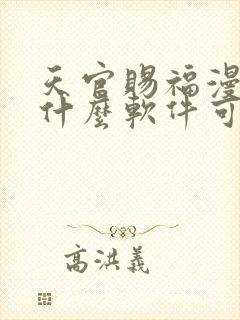 天官賜福漫
什麼軟件可
高洪義